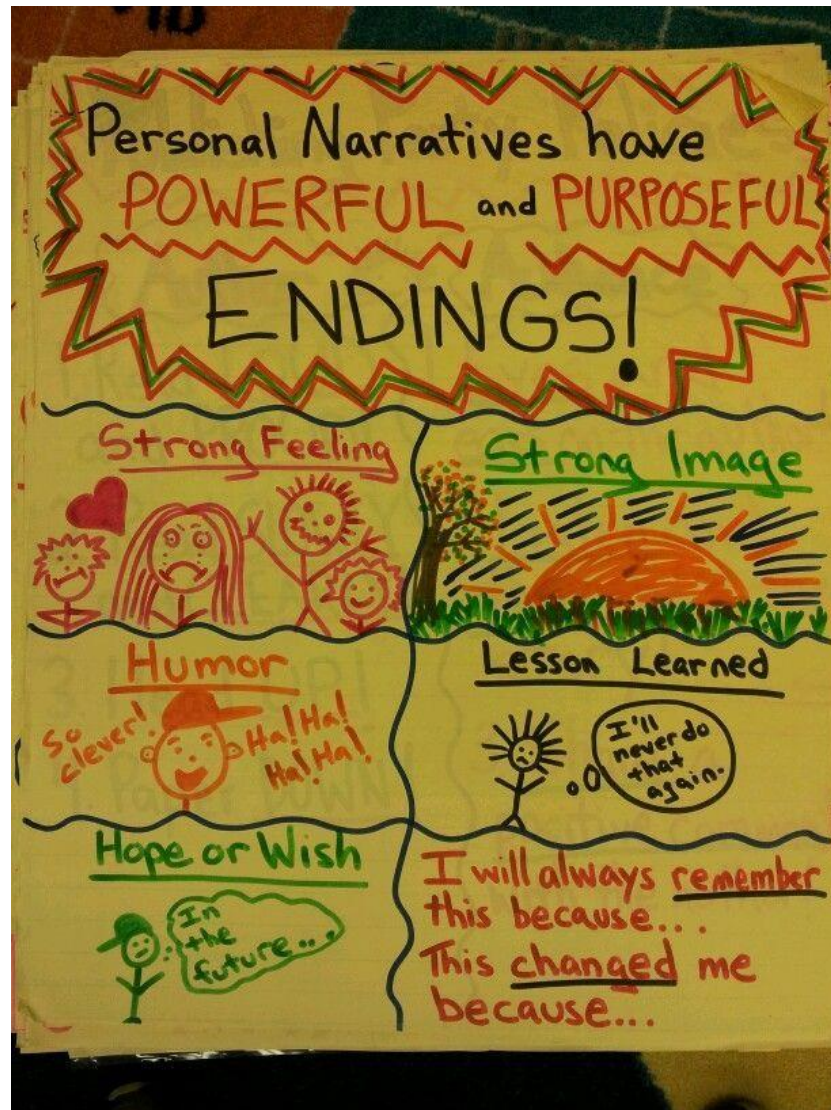 Personal Narratives have
POWERFUL and PURPOSEFUL
ENDINGS!
Strong Feeling
Strong Image
Humor
So
clever!
Ha! Ha!
Ha! Ha!
Lesson Learned
I'll
never do
that
again.
Hope or Wish
In
the
future...
I will always remember
this because...
This changed me
because...